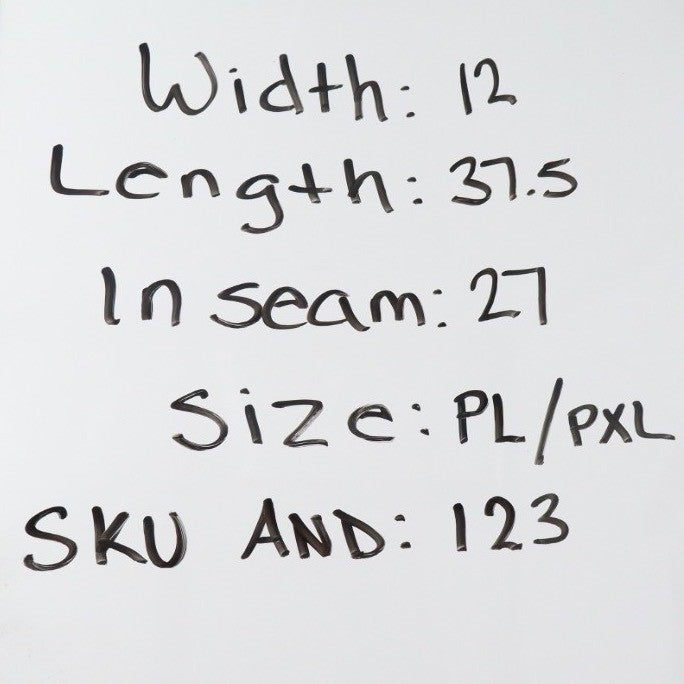 Width: 12
Length: 37.5
In seam: 27
Size: PL/PXL
SKU AND: 123